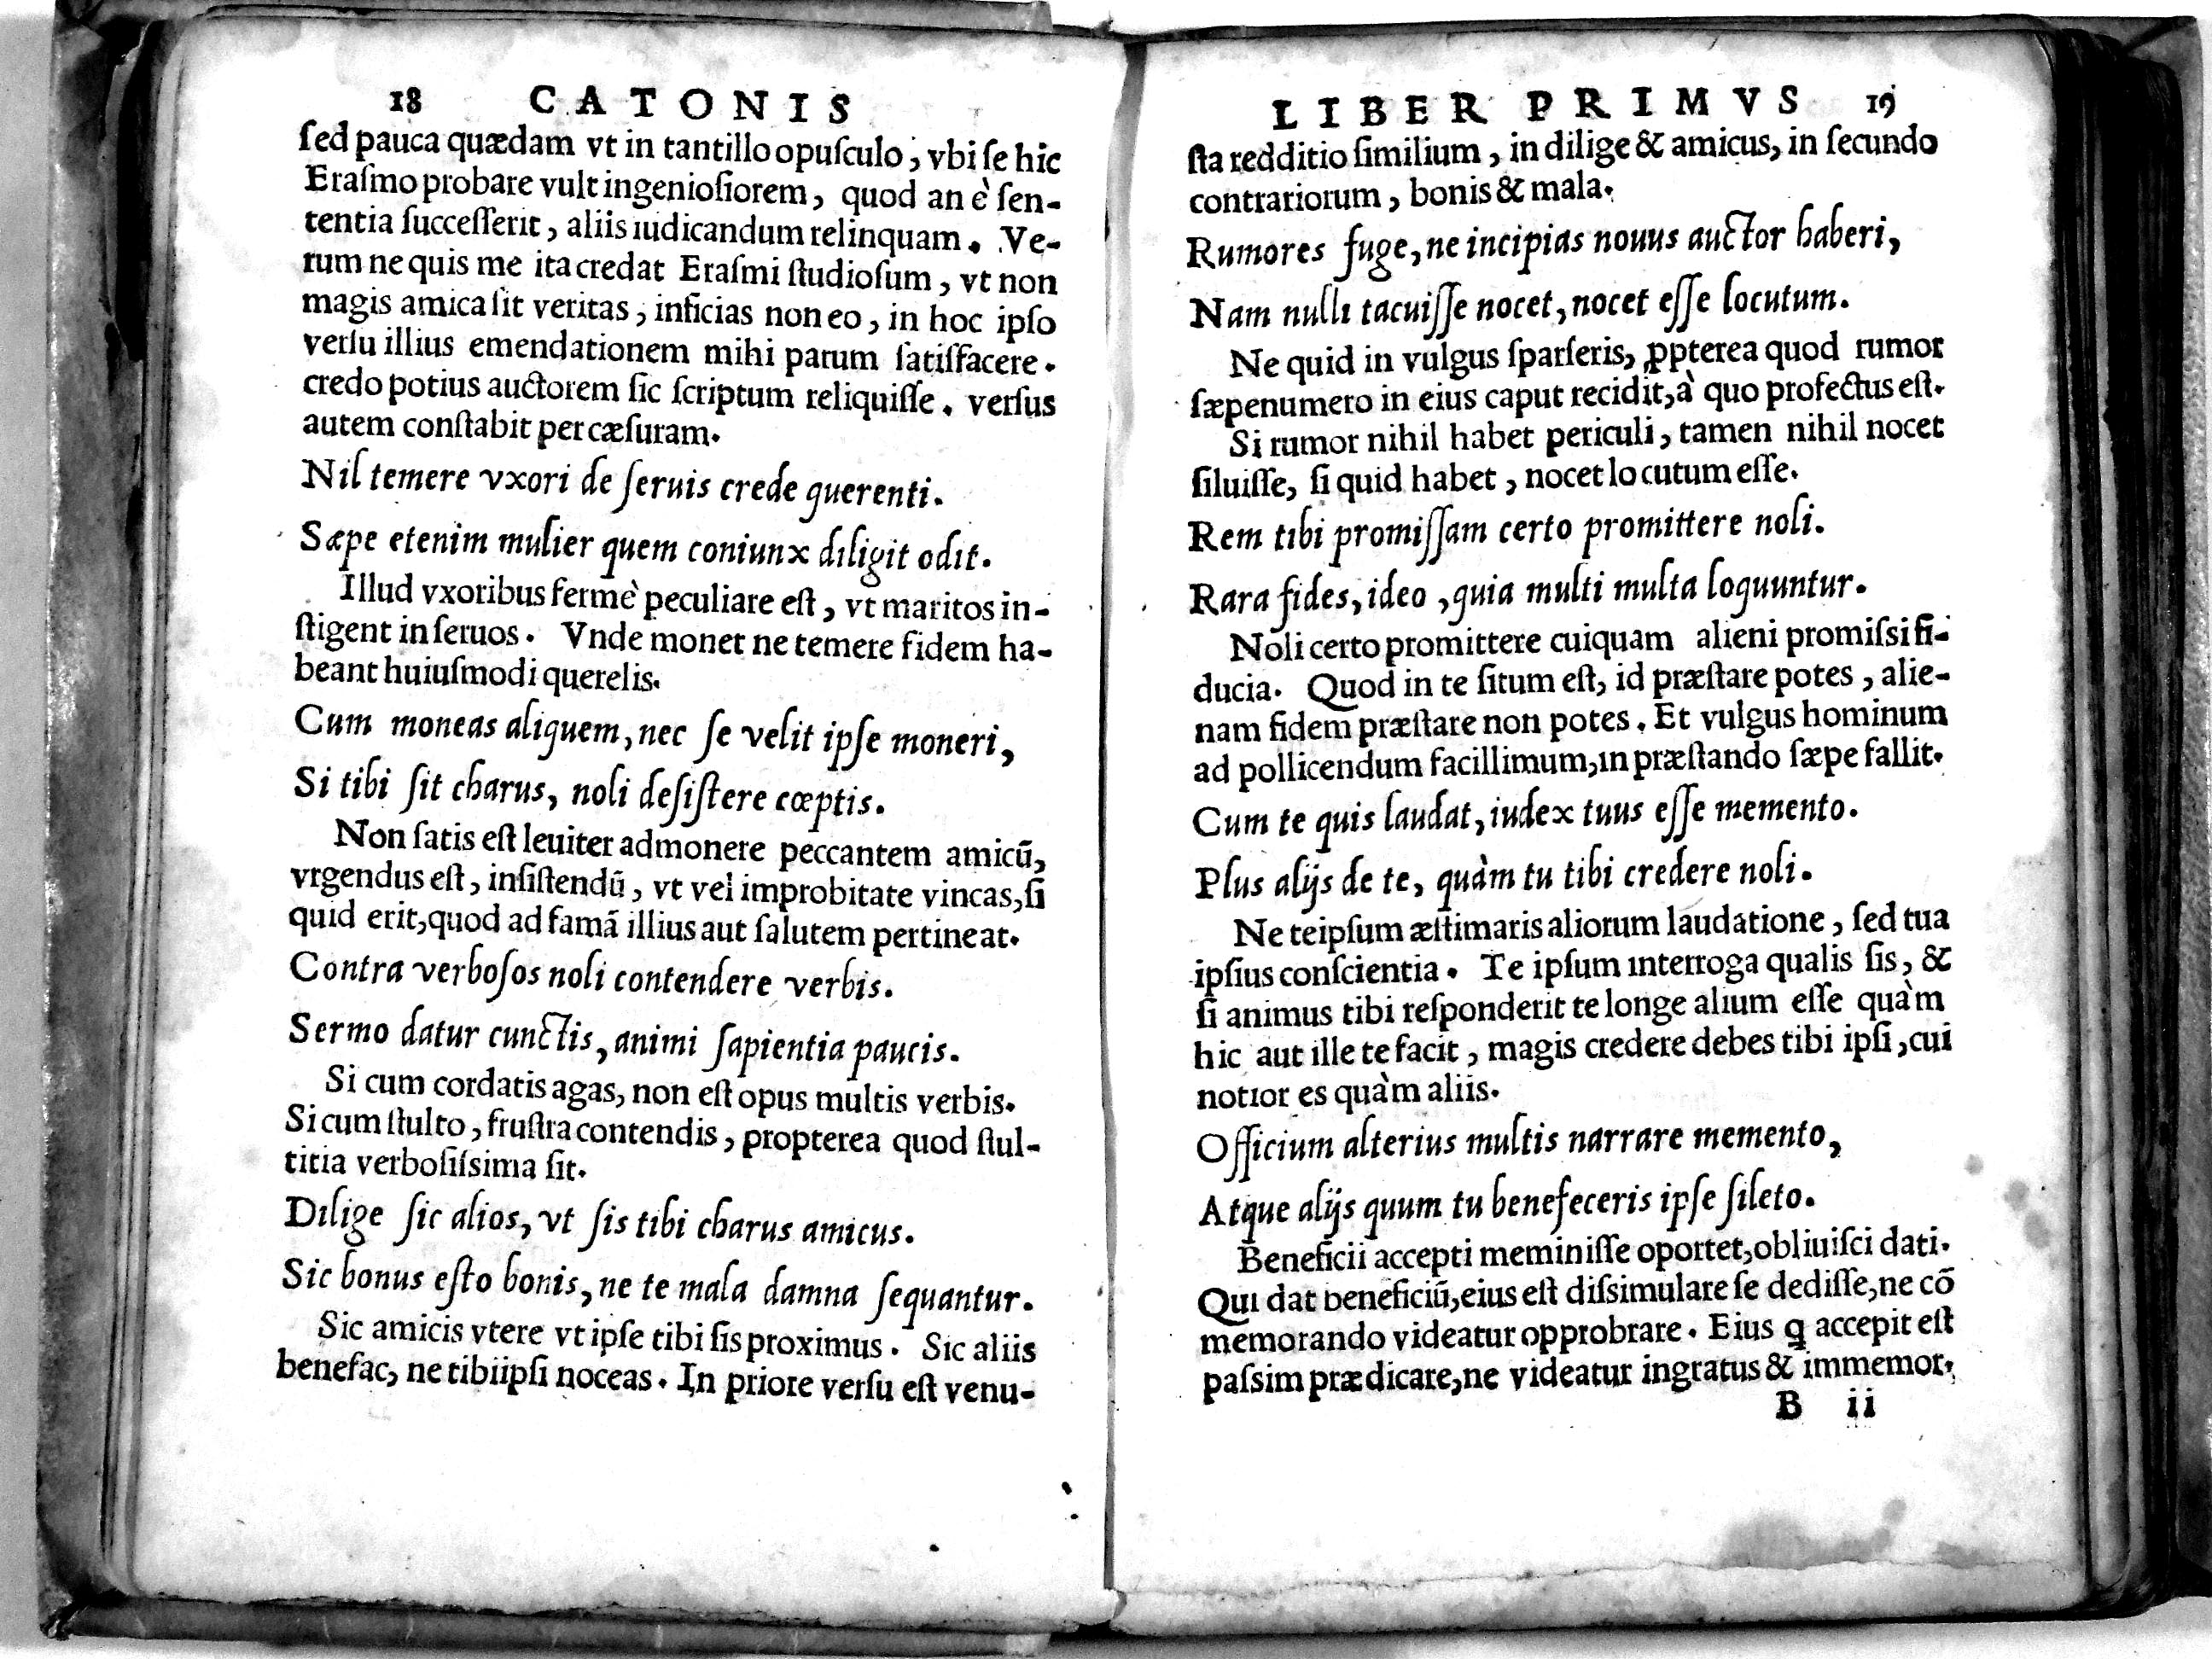 18 CATONIS
ſed pauca quædam vt in tantillo opuſculo, vbi ſe hic
Eraſmo probare vult ingenioſiorem, quod an è ſen-
tentia ſucceſſerit, aliis iudicandum relinquam. Ve-
rum ne quis me ita credat Eraſmi ſtudioſum, vt non
magis amica ſit veritas, inficias non eo, in hoc ipſo
verſu illius emendationem mihi parum ſatiſfacere.
credo potius auctorem ſic ſcriptum reliquiſſe. verſus
autem conſtabit per cæſuram.
Nil temere vxori de ſeruis crede querenti.
Sæpe etenim mulier quem coniunx diligit odit.
Illud vxoribus fermè peculiare eſt, vt maritos in-
ſtigent in ſeruos. Vnde monet ne temere fidem ha-
beant huiuſmodi querelis.
Cum moneas aliquem, nec ſe velit ipſe moneri,
Si tibi ſit charus, noli deſiſtere cœptis.
Non ſatis eſt leuiter admonere peccantem amicū,
vrgendus eſt, inſiſtendū, vt vel improbitate vincas, ſi
quid erit, quod ad famā illius aut ſalutem pertineat.
Contra verboſos noli contendere verbis.
Sermo datur cunctis, animi ſapientia paucis.
Si cum cordatis agas, non eſt opus multis verbis.
Si cum ſtulto, fruſtra contendis, propterea quod ſtul-
titia verboſiſsima ſit.
Dilige ſic alios, vt ſis tibi charus amicus.
Sic bonus eſto bonis, ne te mala damna ſequantur.
Sic amicis vtere vt ipſe tibi ſis proximus. Sic aliis
benefac, ne tibiipſi noceas. In priore verſu eſt venu-
LIBER PRIMVS 19
ſta redditio ſimilium, in dilige & amicus, in ſecundo
contrariorum, bonis & mala.
Rumores fuge, ne incipias nouus auctor haberi,
Nam nulli tacuiſſe nocet, nocet eſſe locutum.
Ne quid in vulgus ſparſeris, ꝓpterea quod rumor
ſæpenumero in eius caput recidit, à quo profectus eſt.
Si rumor nihil habet periculi, tamen nihil nocet
ſiluiſſe, ſi quid habet, nocet locutum eſſe.
Rem tibi promiſſam certo promittere noli.
Rara fides, ideo, quia multi multa loquuntur.
Noli certo promittere cuiquam alieni promiſsi fi-
ducia. Quod in te ſitum eſt, id præſtare potes, alie-
nam fidem præſtare non potes. Et vulgus hominum
ad pollicendum facillimum, in præſtando ſæpe fallit.
Cum te quis laudat, iudex tuus eſſe memento.
Plus alijs de te, quàm tu tibi credere noli.
Ne teipſum æſtimaris aliorum laudatione, ſed tua
ipſius conſcientia. Te ipſum interroga qualis ſis, &
ſi animus tibi reſponderit te longe alium eſſe quàm
hic aut ille te facit, magis credere debes tibi ipſi, cui
notior es quàm aliis.
Officium alterius multis narrare memento,
Atque alijs quum tu benefeceris ipſe ſileto.
Beneficii accepti meminiſſe oportet, obliuiſci dati.
Qui dat beneficiū, eius eſt diſsimulare ſe dediſſe, ne cō
memorando videatur opprobrare. Eius q accepit eſt
paſsim prædicare, ne videatur ingratus & immemor.
B ii